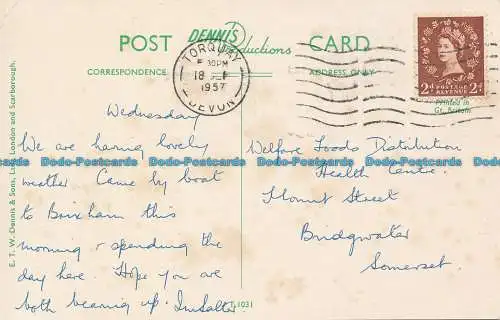 POST DENNIS Productions CARD
CORRESPONDENCE ADDRESS ONLY
TORQUAY
18 SEP
1957
DEVON
2D POSTAGE REVENUE 2D
Printed in
Gt. Britain
Wednesday
We are having lovely
weather Came by boat
to Brixham this
morning & spending the
day here. Hope you are
both bearing up.
Welfare Foods Distribution
Health Centre.
Mount Street
Bridgwater
Somerset.
E. T. W. Dennis & Sons, Ltd., London and Scarborough.
T.1031
Dodo-Postcards Dodo-Postcards Dodo-Postcards Dodo-Postcards Dodo-Postcards